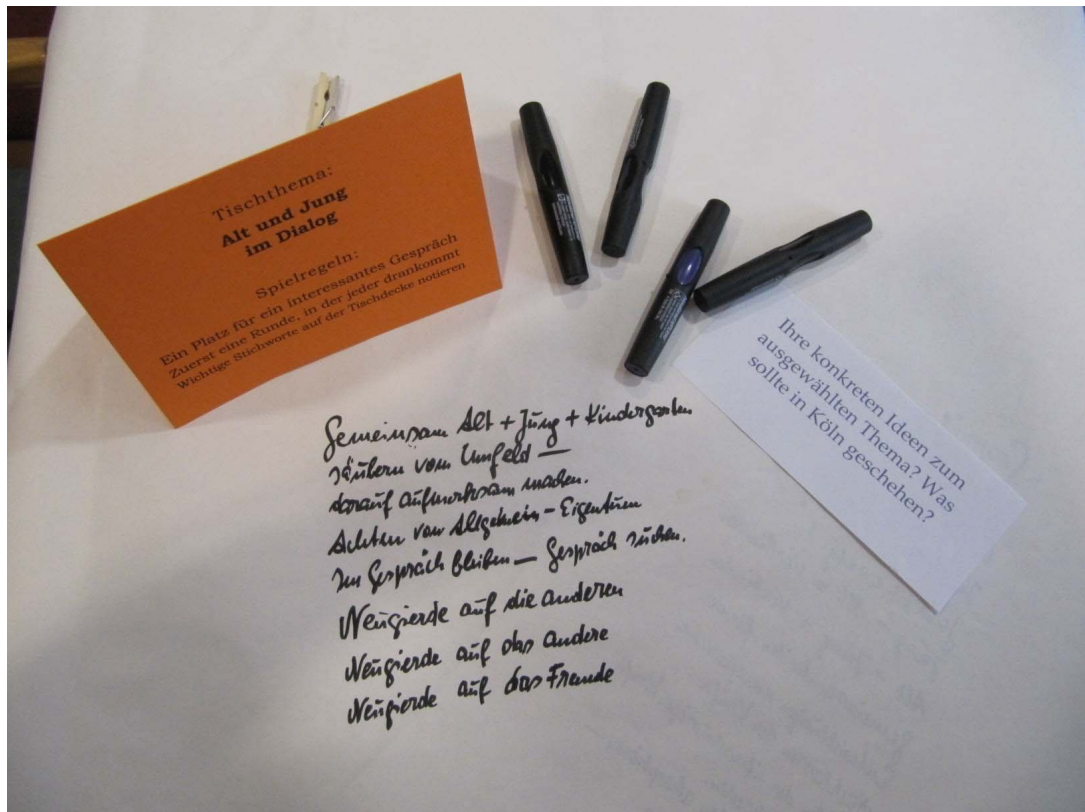 Tischthema:
Alt und Jung
im Dialog
Spielregeln:
Ein Platz für ein interessantes Gespräch
Zuerst eine Runde, in der jeder drankommt
Wichtige Stichworte auf der Tischdecke notieren
Ihre konkreten Ideen zum
ausgewählten Thema? Was
sollte in Köln geschehen?
Gemeinsam Alt + Jung + Kindergarten
säubern vom Umfeld —
darauf aufmerksam machen.
Achten von Allgemein - Eigentum
Im Gespräch bleiben — Gespräch suchen.
Neugierde auf die anderen
Neugierde auf das andere
Neugierde auf das Fremde